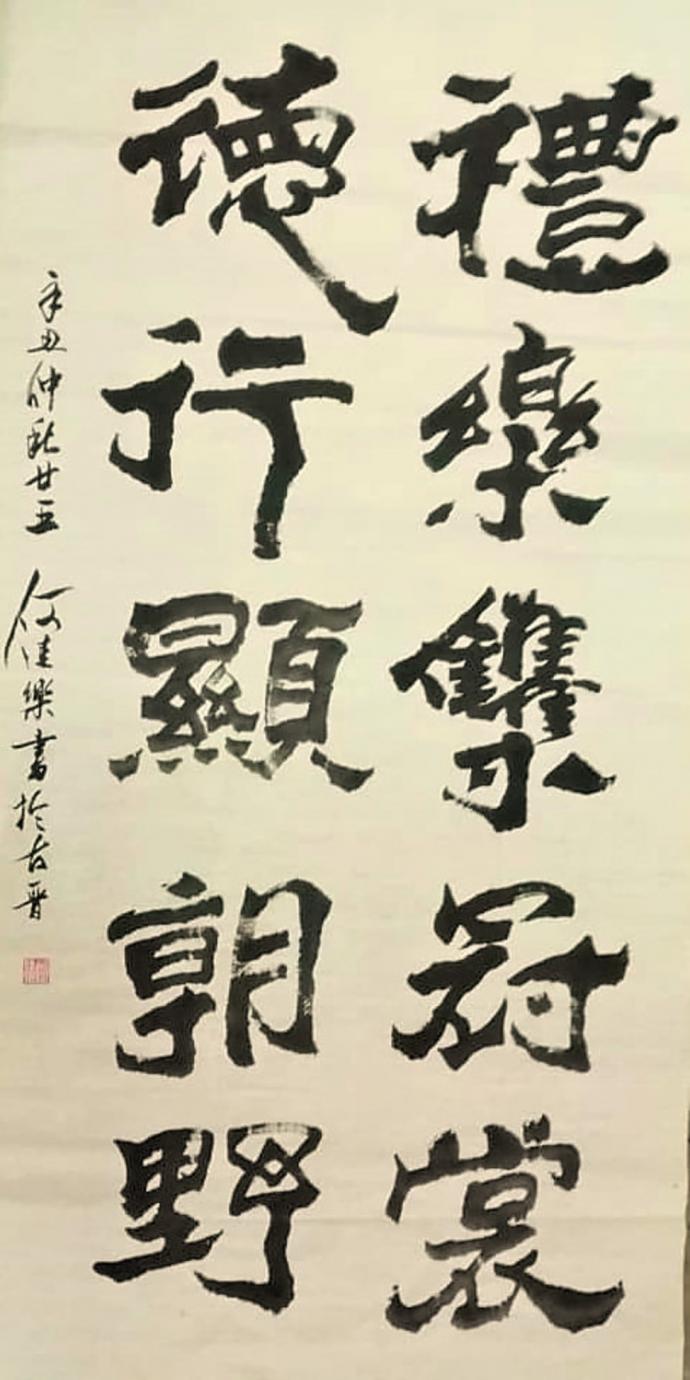 禮樂集冠裳
德行顯朝野
辛丑仲秋廿五 何佳樂書於古晉